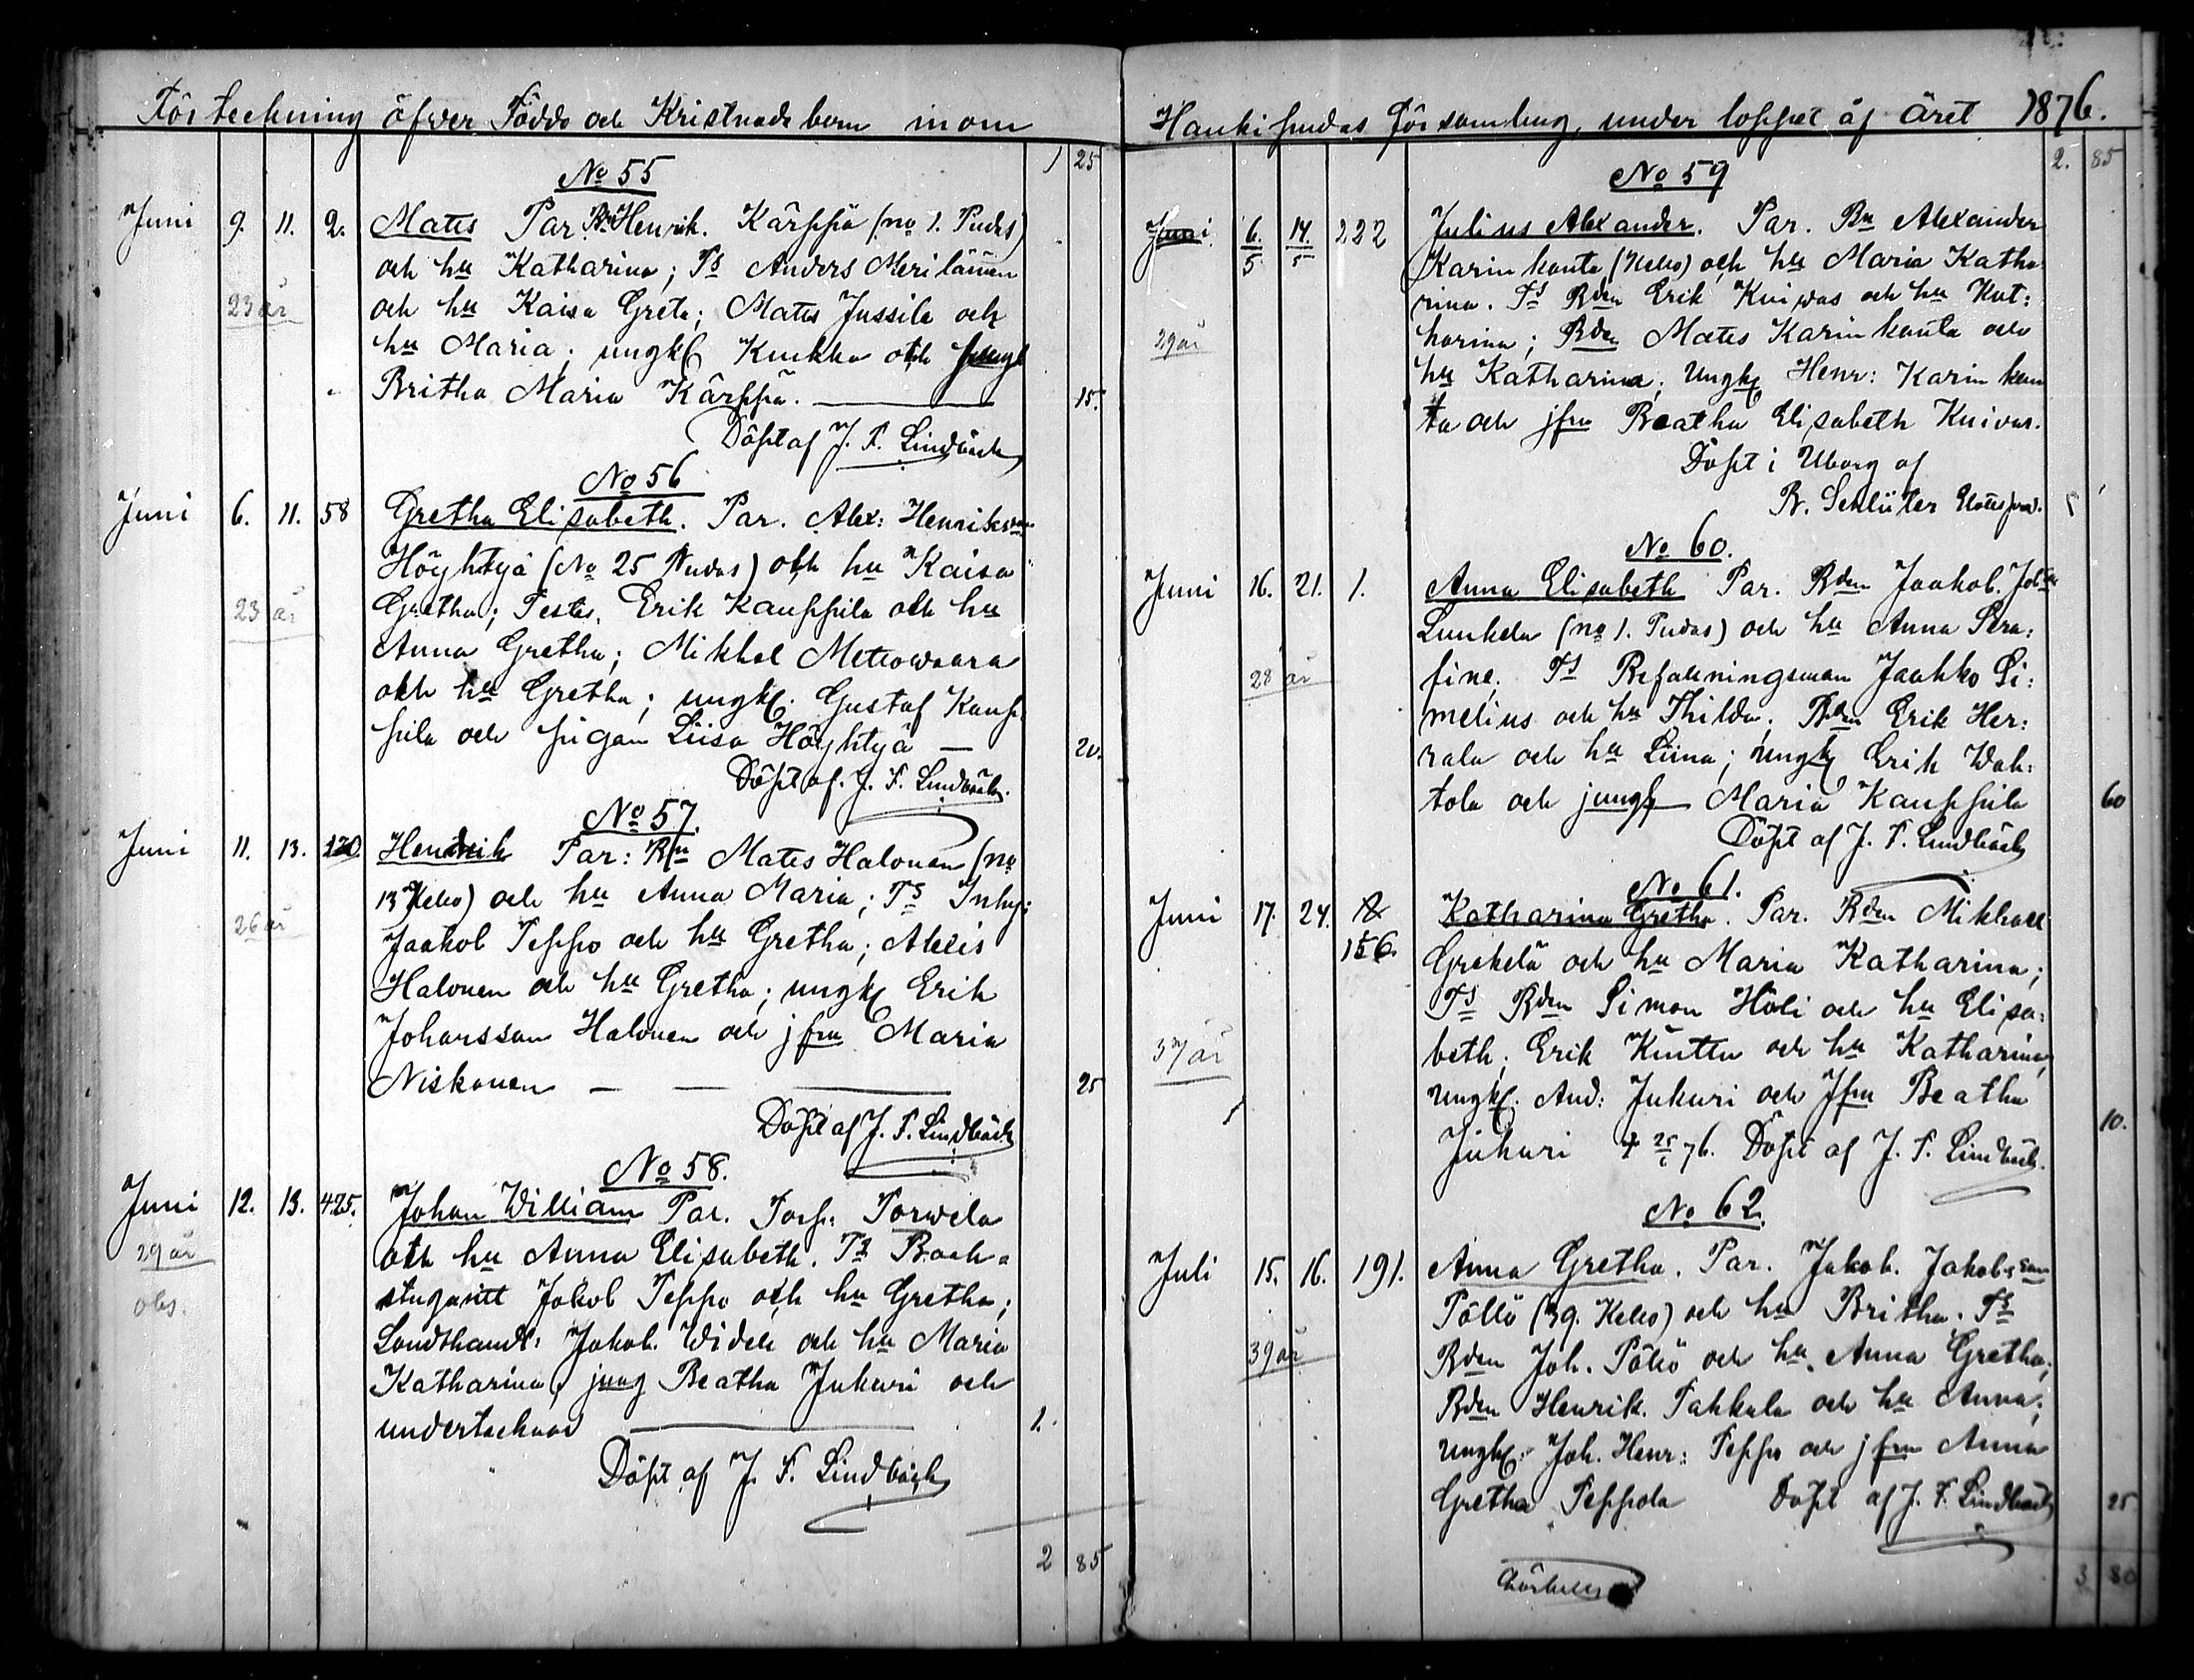 Förteckning öfver Födda och Kristnade barn inom
1 25
No 55
Juni 9. 11. 2. Mates Par Bn Henrik. Kärppä (no 1. Pudas)
och hu Katharina; Ts Anders Meriläinen
23 år och hu Kaisa Greta; Mates Jussila och
hu Maria; ungk Kuukka och jungf
Britha Maria Kärppä. 15.
Döpt af J. F. Lindbäck
No 56
Juni 6. 11. 58 Gretha Elisabeth. Par. Alex: Henriksson
Höyhtyä (No 25 Pudas) och hu Kaisa
23 år Gretha; Testes. Erik Kauppila och hu
Anna Gretha; Mikkel Metsowaara
och hu Gretha; ungk. Gustaf Kaup-
pila och pigan Liisa Höyhtyä 20.
Döpt af. J. F. Lindbäck.
No 57.
Juni 11. 13. 120 Hendrik Par: Bn Mates Halonen (no
13 Kello) och hu Anna Maria; Ts Inhy:
26 år Jaakob Teppo och hu Gretha; Alexis
Halonen och hu Gretha; ungk Erik
Johansson Halonen och jfru Maria
Niskanen 25
Döpt af J. F. Lindbäck
No 58.
Juni 12. 13. 425. Johan William Par. Torp: Torwela
29 år och hu Anna Elisabeth. Ts Back-
obs. stugusitt Jakob Teppo och hu Gretha;
Landthandl: Jakob. Widel och hu Maria
Katharina, jung Beatha Jukuri och
undertecknad 1.
Döpt af J. F. Lindbäck
2 85
Haukipudas församling, under loppet af Året 1876.
2. 85
No 59
Juni 6/5 14/5 222 Julius Alexander. Par. Bn Alexander
Karinkanta (Kello) och hu Maria Katha
rina. Ts Bden Erik Kuiwas och hu Kat:
29 år harina; Bden Mates Karinkanta och
hu Katharina; Ungk Henr: Karinkan
ta och jfru Beatha Elisabeth Kuivas.
Döpt i Uborg af
B. Schlüter
No 60.
Juni 16. 21. 1. Anna Elisabeth Par. Bden Jaakob.
Luukela (no 1. Pudas) och hu Anna Sera:
28 år fina. Ts Befallningsman Jaakko Si:
melius och hu Thilda; Bden Erik Her:
rala och hu Liina; ungk Erik Wah:
tola och jungf Maria Kauppila 60
Döpt af J. F. Lindbäck
No 61.
Juni 17. 24. 156. Katharina Gretha. Par. Bden Mikhael
Grekelä och hu Maria Katharina;
Ts Bden Simon Holi och hu Elisa:
37 år beth; Erik Kuittu och hu Katharina,
ungk. And: Jukuri och Jfru Beatha
Jukuri † 25/6 76. Döpt af J. F. Lindbäck. 10.
No 62.
Juli 15. 16. 191. Anna Gretha. Par. Jakob. Jakobsson
Pöllö (39. Kello) och hu Britha. Ts
39 år Bden Joh. Pöllö och hu Anna Gretha;
Bden Henrik. Takkula och hu Anna;
ungk. Joh. Henr: Teppo och jfru Anna
Gretha Teppola Döpt af J. F. Lindbäck 25
3 80